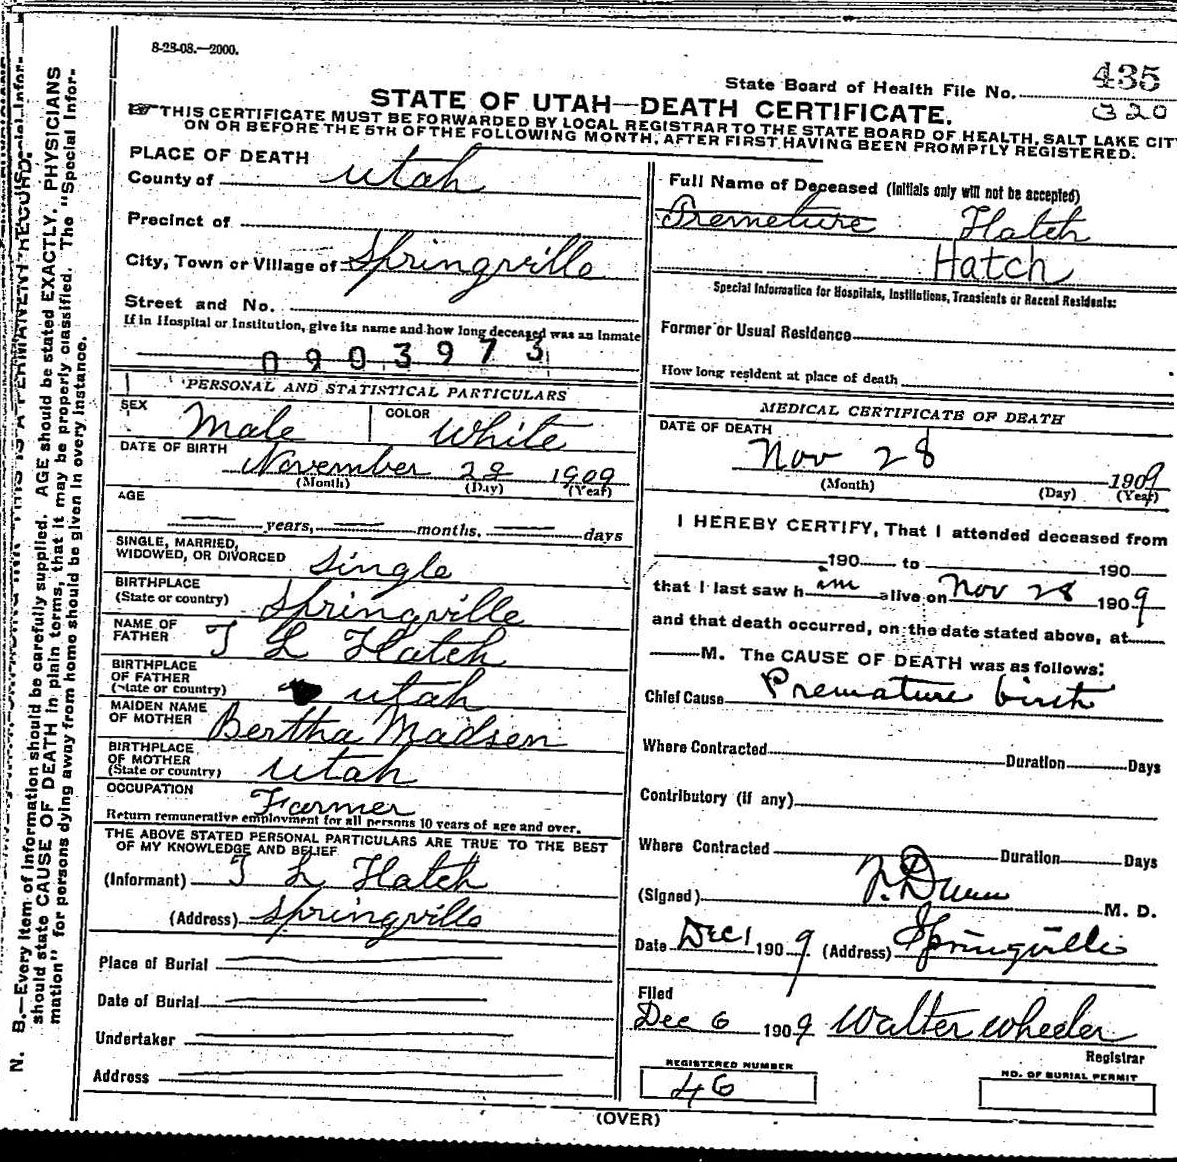 8-23-08.—2000.
State Board of Health File No. 435
320
STATE OF UTAH—DEATH CERTIFICATE.
THIS CERTIFICATE MUST BE FORWARDED BY LOCAL REGISTRAR TO THE STATE BOARD OF HEALTH, SALT LAKE CITY
ON OR BEFORE THE 5TH OF THE FOLLOWING MONTH, AFTER FIRST HAVING BEEN PROMPTLY REGISTERED.
PLACE OF DEATH
County of Utah
Precinct of
City, Town or Village of Springville
Street and No.
If in Hospital or Institution, give its name and how long deceased was an inmate
0903973
PERSONAL AND STATISTICAL PARTICULARS
SEX Male COLOR White
DATE OF BIRTH
November 28 1909
(Month) (Day) (Year)
AGE
years, months, days
SINGLE, MARRIED,
WIDOWED, OR DIVORCED Single
BIRTHPLACE
(State or country) Springville
NAME OF
FATHER T L Hatch
BIRTHPLACE
OF FATHER
(State or country) Utah
MAIDEN NAME
OF MOTHER Bertha Madsen
BIRTHPLACE
OF MOTHER
(State or country) Utah
OCCUPATION
Farmer
Return remunerative employment for all persons 10 years of age and over.
THE ABOVE STATED PERSONAL PARTICULARS ARE TRUE TO THE BEST
OF MY KNOWLEDGE AND BELIEF
(Informant) T L Hatch
(Address) Springville
Place of Burial
Date of Burial
Undertaker
Address
Full Name of Deceased (Initials only will not be accepted)
Premeture Hatch
Hatch
Special Information for Hospitals, Institutions, Transients or Recent Residents:
Former or Usual Residence
How long resident at place of death
MEDICAL CERTIFICATE OF DEATH
DATE OF DEATH
Nov 28 1909
(Month) (Day) (Year)
I HEREBY CERTIFY, That I attended deceased from
190 to 190
that I last saw h im alive on Nov 28 1909
and that death occurred, on the date stated above, at
M. The CAUSE OF DEATH was as follows:
Chief Cause Premature birth
Where Contracted Duration Days
Contributory (if any)
Where Contracted Duration Days
(Signed) F. Dunn M. D.
Date Dec 1 1909 (Address) Springville
Filed
Dec 6 1909 Walter Wheeler
Registrar
REGISTERED NUMBER
46
NO. OF BURIAL PERMIT
(OVER)
N. B.—Every item of information should be carefully supplied. AGE should be stated EXACTLY. PHYSICIANS
should state CAUSE OF DEATH in plain terms, that it may be properly classified. The "Special Infor-
mation" for persons dying away from home should be given in every instance.